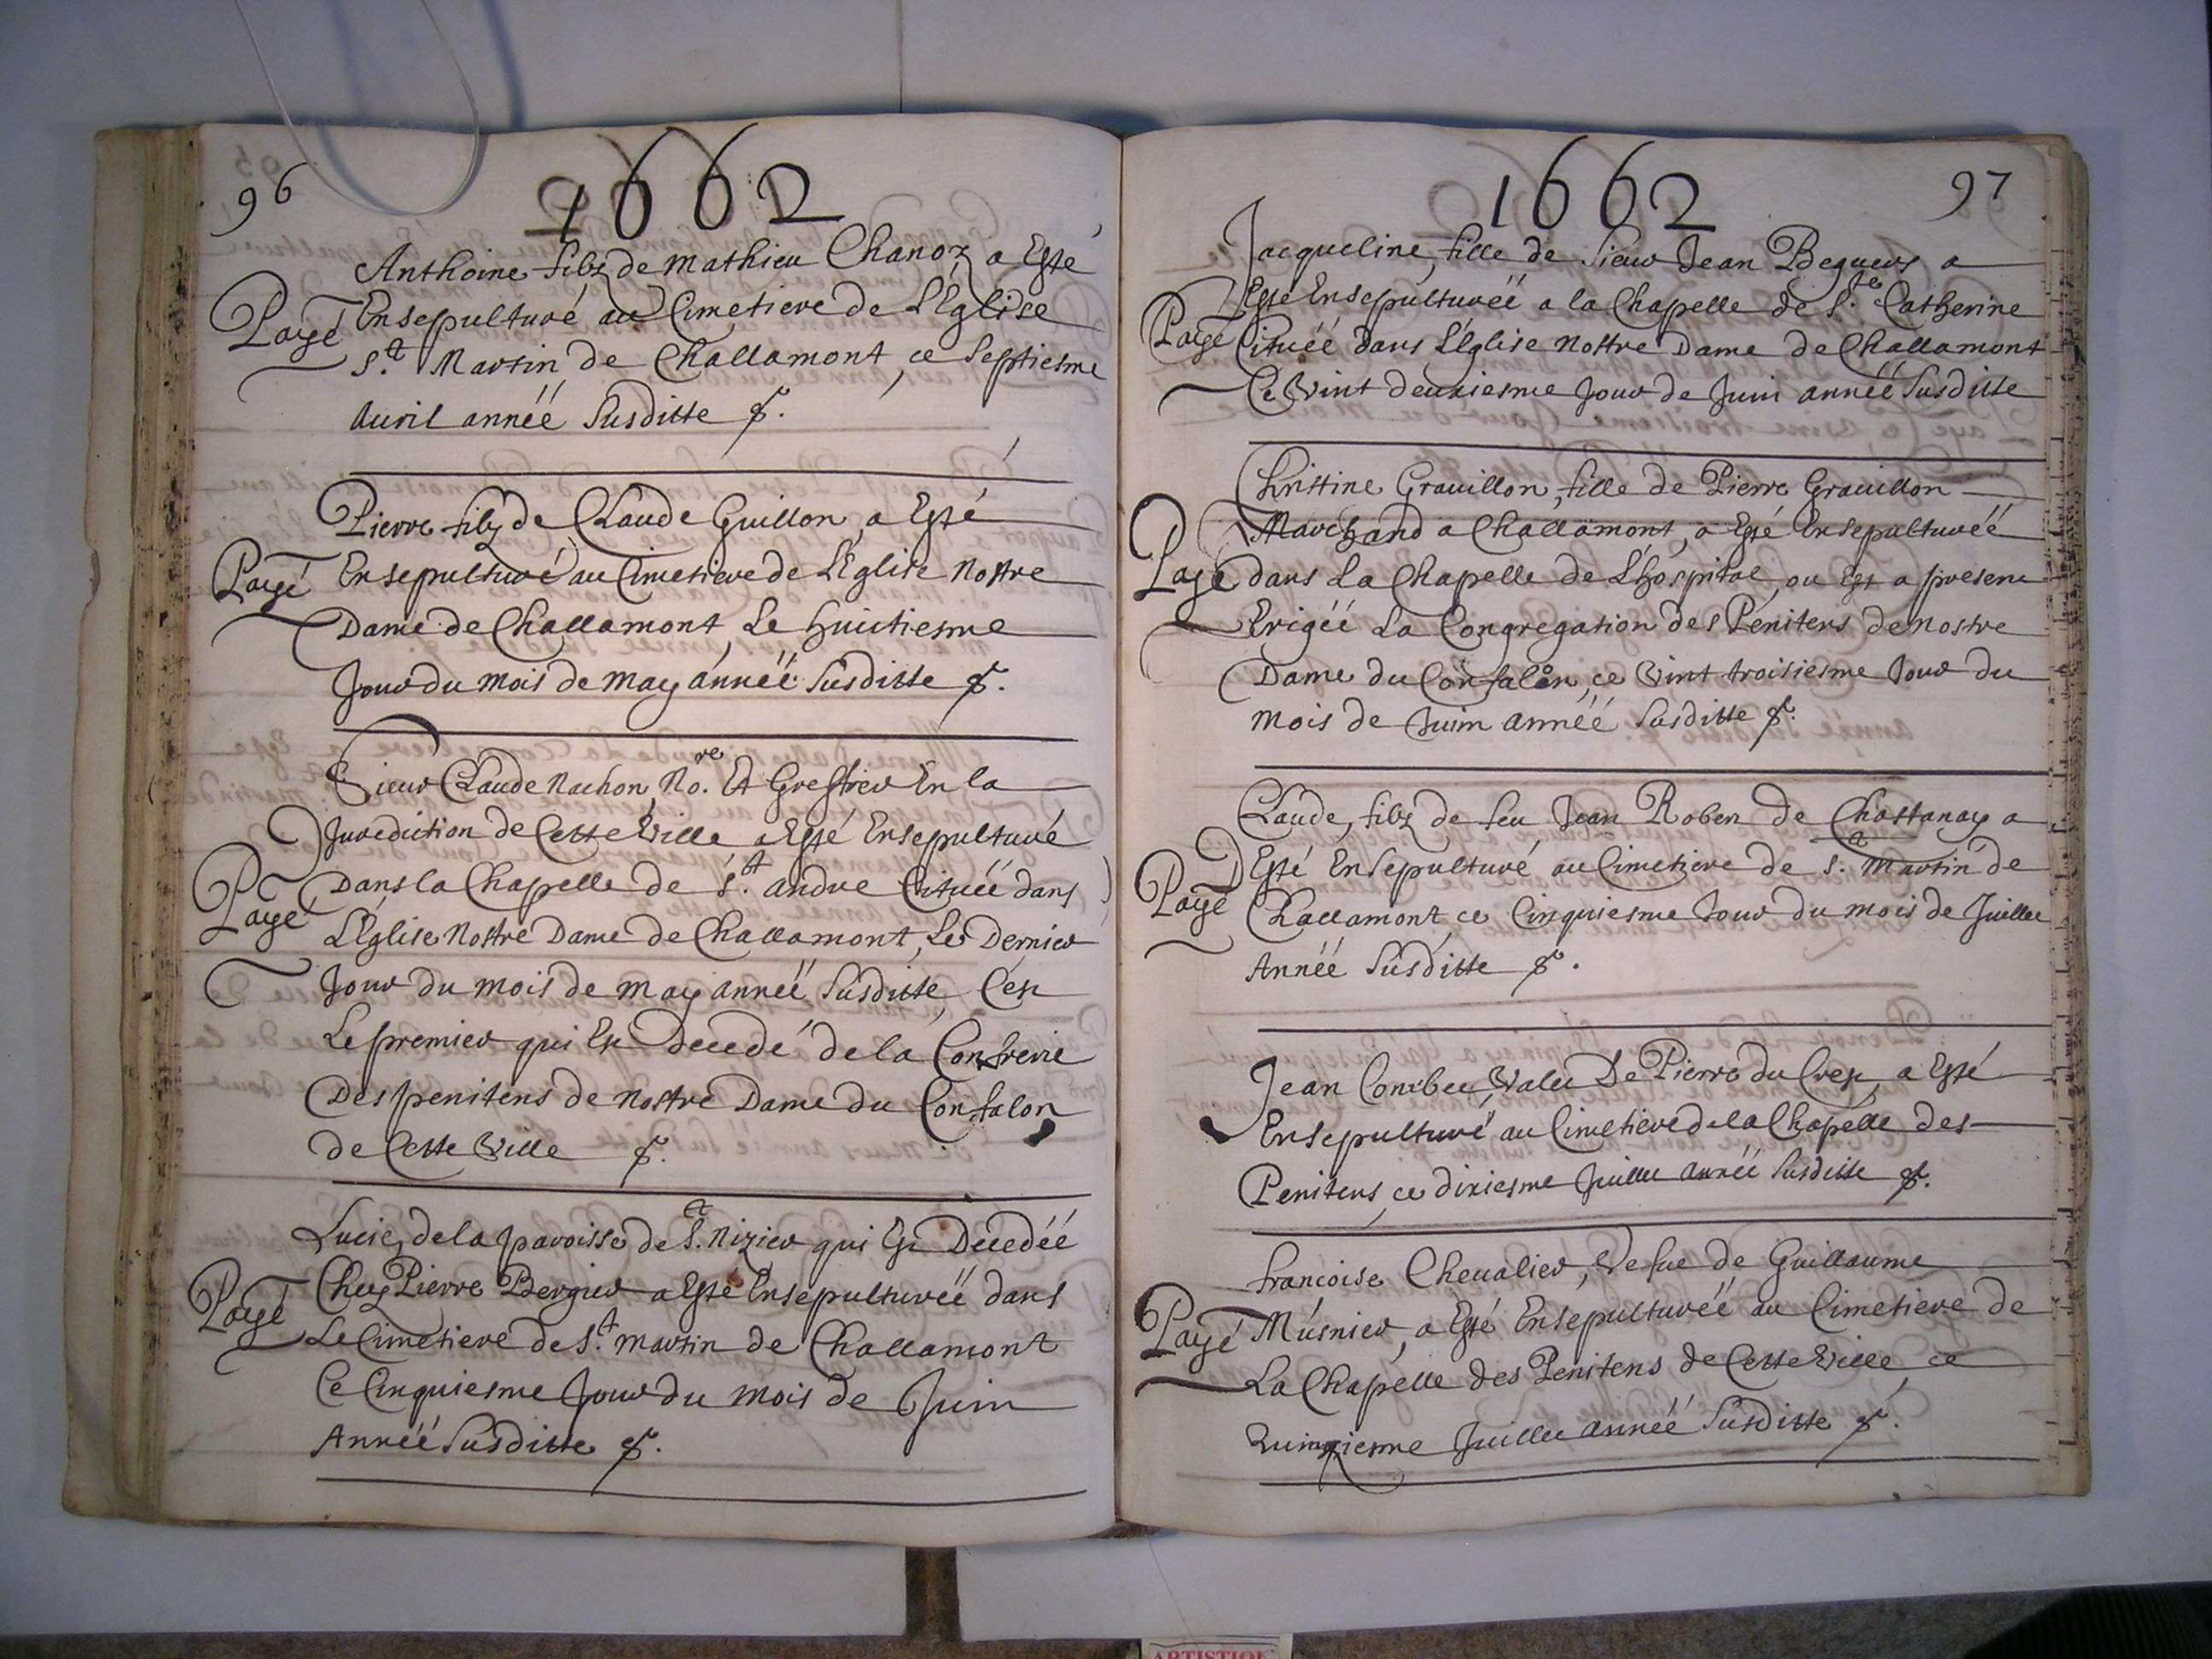 96
1662
Anthoine filz de Mathieu Chanoz a Esté
Payé
Ensepulturé au Cimetiere de L'Eglise
St. Martin de Challamont, ce Septiesme
Auril année Susditte
Pierre filz de Claude Guillon a Esté
Payé
Ensepulturé au Cimetiere de L'Eglise Nostre
Dame de Challamont, Le huictiesme
Jour du mois de may année Susditte
Sieur Claude Nachon, No.re Et Greffier En la
Jurediction de Cette Ville a Esté Ensepulturé
Payé
Dans la Chapelle de St. andre Cituéé dans
L'Église Nostre Dame de Challamont, Le Dernier
Jour du mois de may année Susditte, C'est
Le premier qui Est Decedé de la Confrerie
Des penitens de Nostre Dame du Confalon
de Cette Ville
Lucie, de la paroisse de St. Nizier qui Est Decedéé
Payé
Chez Pierre Bergier a Esté Ensepulturéé dans
Le Cimetiere de St. Martin de Challamont
Ce Cinquiesme Jour du mois de Juin
Année Susditte
97
1662
Jacqueline, fille de Sieur Jean Begueux a
Esté Ensepulturéé a la Chapelle de S.te Catherine
Payé
Cituéé dans L'Église Nostre Dame de Challamont
Ce Vint deuxiesme Jour de Juin année Susditte
Christine Grauillon, fille de Pierre Grauillon
Marchand a Challamont, a Esté Ensepulturéé
Payé
dans La Chapelle de L'hospital, ou Est a present
Erigéé La Congregation des Pénitens de Nostre
Dame du Confalon, ce Vint troisiesme Jour du
mois de Juin année Susditte
Claude, filz de feu Jean Robert de Chastanay a
Esté Ensepulturé au Cimetiere de St. Martin de
Payé
Challamont, ce Cinquiesme Jour du mois de Juillet
Année Susditte
Jean Combet, Valet De Pierre du Crest, a Esté
Ensepulturé au Cimetiere de la Chapelle des
Penitens, ce dixiesme Juillet année Susditte
francoise Cheualier, Vefue de Guillaume
Payé
Músnier, a Esté Ensepulturéé au Cimetiere de
La Chapelle des Penitens de Cette Ville, ce
Quinziesme Juillet année Susditte